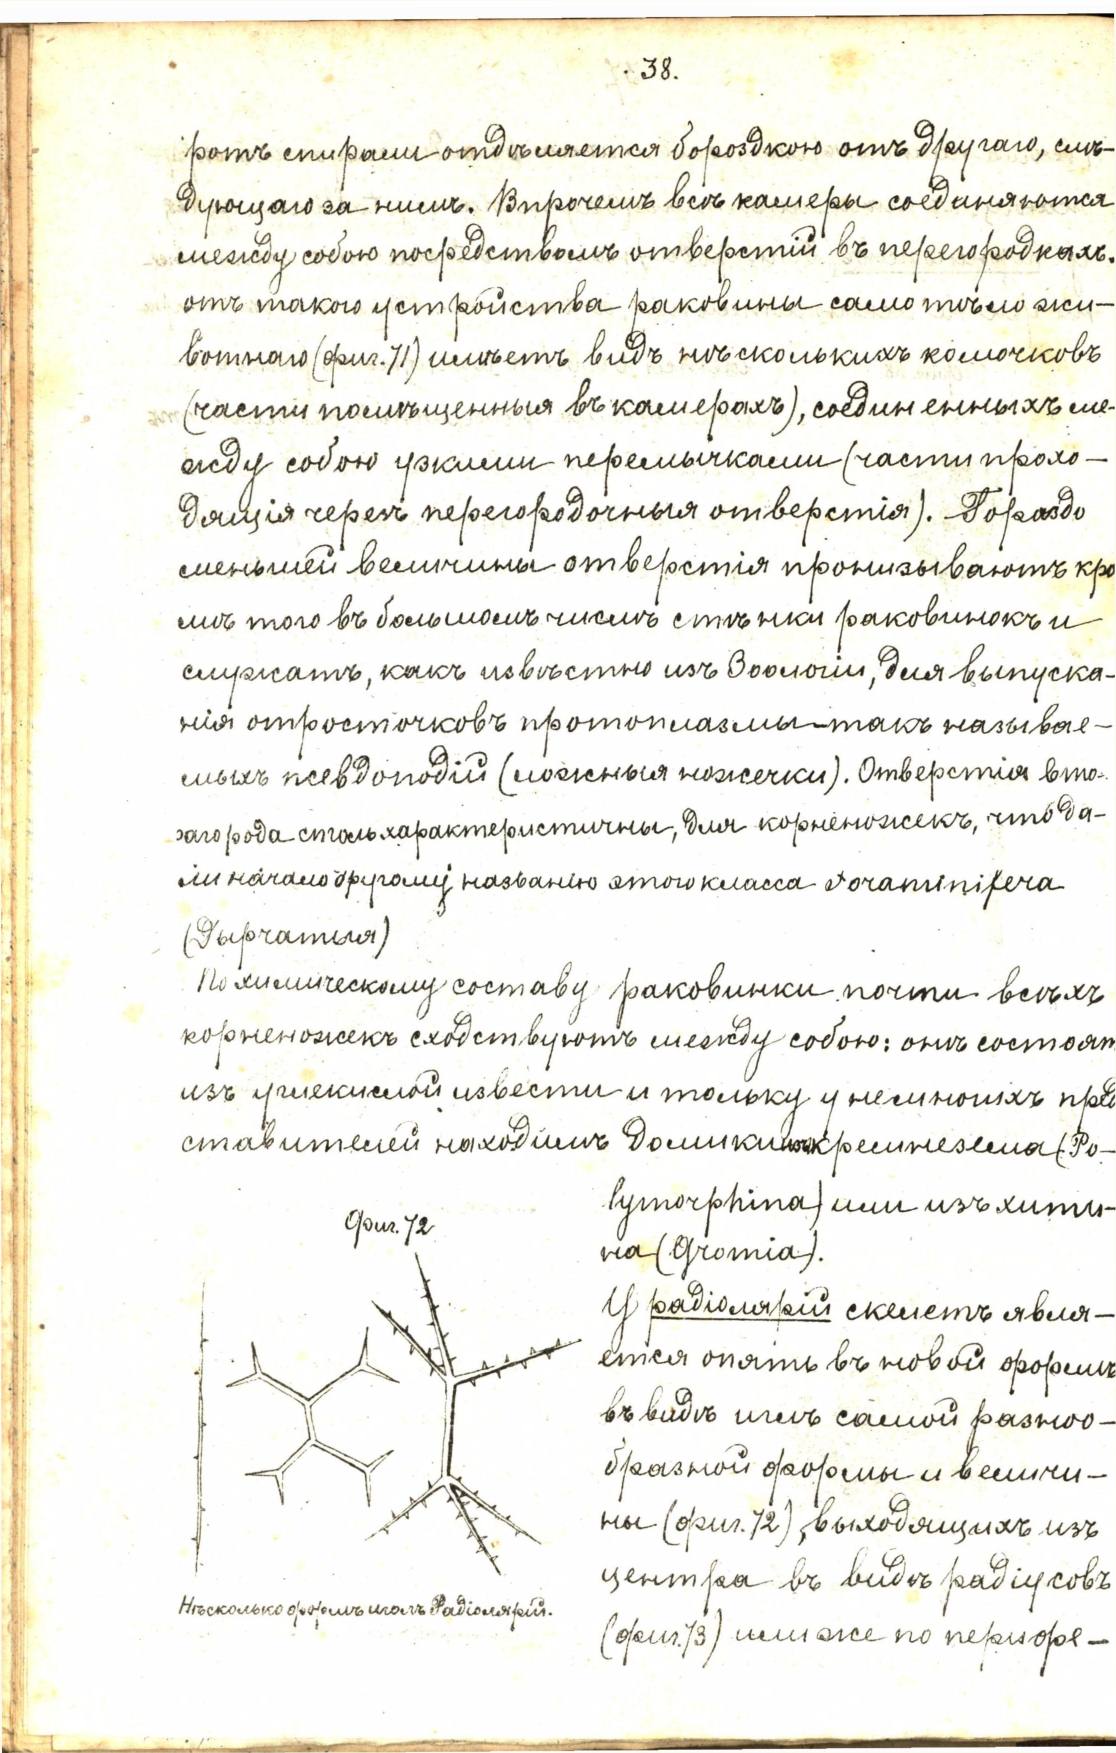 38.
ротъ спирали отдѣляется бороздкою отъ другаго, слѣ-
дующаго за нимъ. Впрочемъ всѣ камеры соединяются
между собою посредствомъ отверстій въ перегородкахъ.
отъ такого устройства раковины само тѣло жи-
вотнаго (фиг. 71) имѣетъ видъ нѣсколькихъ комочковъ
(части помѣщенныя въ камерахъ), соединенныхъ ме-
жду собою узкими перемычками (части прохо-
дящія черезъ перегородочныя отверстія). Гораздо
меньшей величины отверстія пронизываютъ кро
мѣ того въ большомъ числѣ стѣнки раковинокъ и
служатъ, какъ извѣстно изъ Зоологіи, для выпуска-
нія отросточковъ протоплазмы - такъ называе-
мыхъ псевдоподій (ложныя ножечки). Отверстія вто-
раго рода столь характеристичны, для корненожекъ, что да-
ли начало другому названію этого класса Foraminifera
(Дырчатыя)
По химическому составу раковинки почти всѣхъ
корненожекъ сходствуютъ между собою: онѣ состоят
изъ углекислой извести и тольку у немногихъ пред
ставителей находимъ домики изъ кремнезема (Po-
lymorphina) или изъ хити-
на (Gromia).
У радіолярій скелетъ явля-
ется опять въ новой формѣ
въ видѣ иглъ самой разноо-
бразной формы и величи-
ны (фиг. 72), выходящихъ изъ
центра въ видѣ радіусовъ
(фиг. 73) или же по перифе-
Фиг. 72
Нѣсколько формъ иголъ Радіолярій.